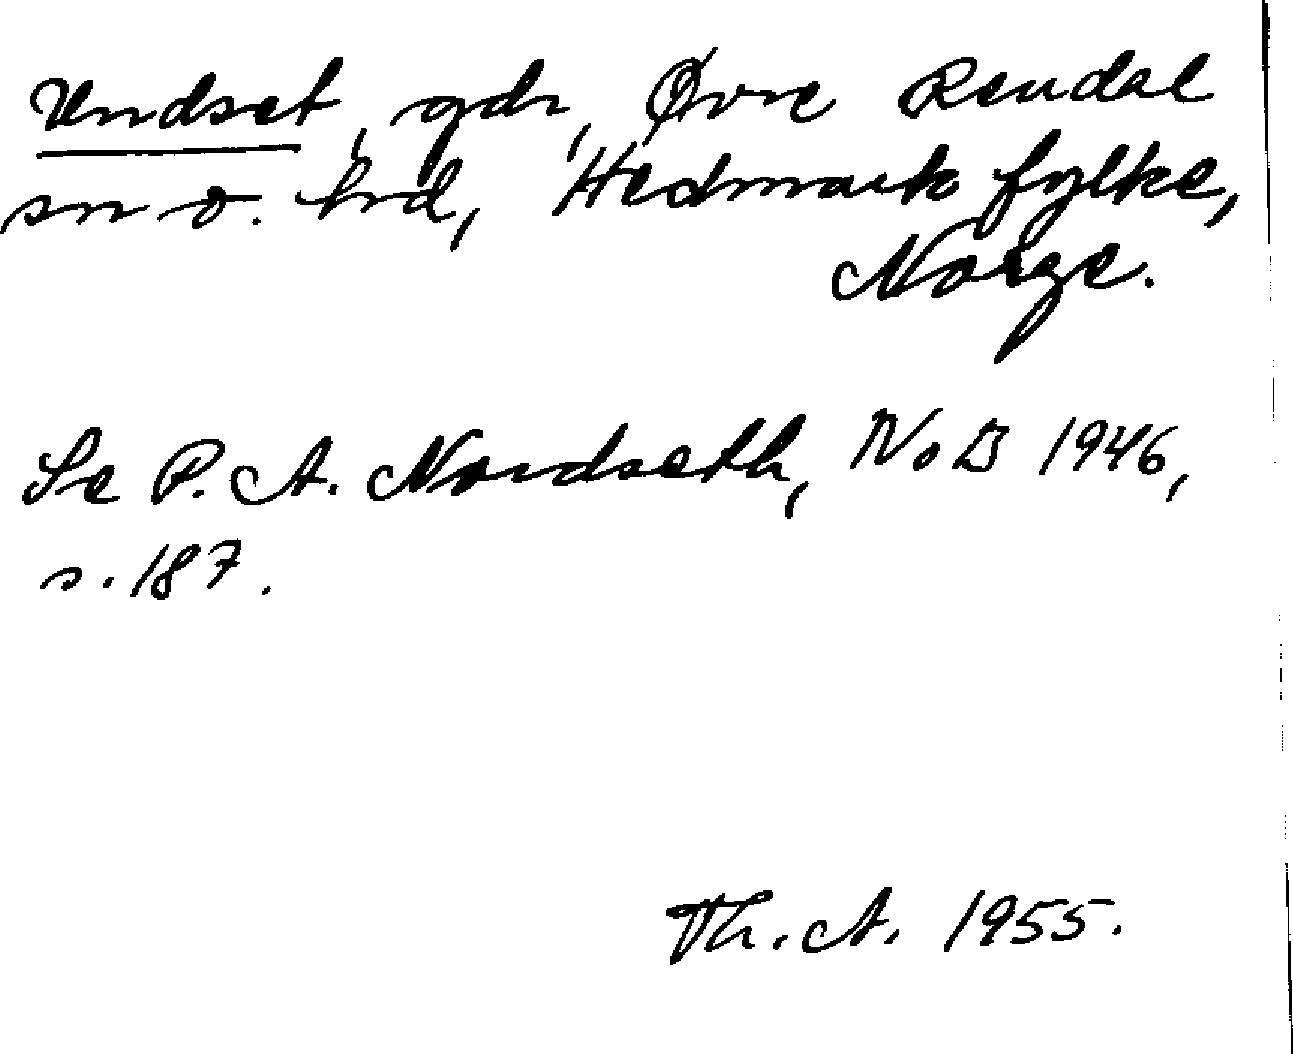 Undset, gdr, Øvre Rendal
sn o. hd, Hedmark fylke,
Norge.
Se P. A. Nordseth, NoB 1946,
s. 187.
Th. A. 1955.